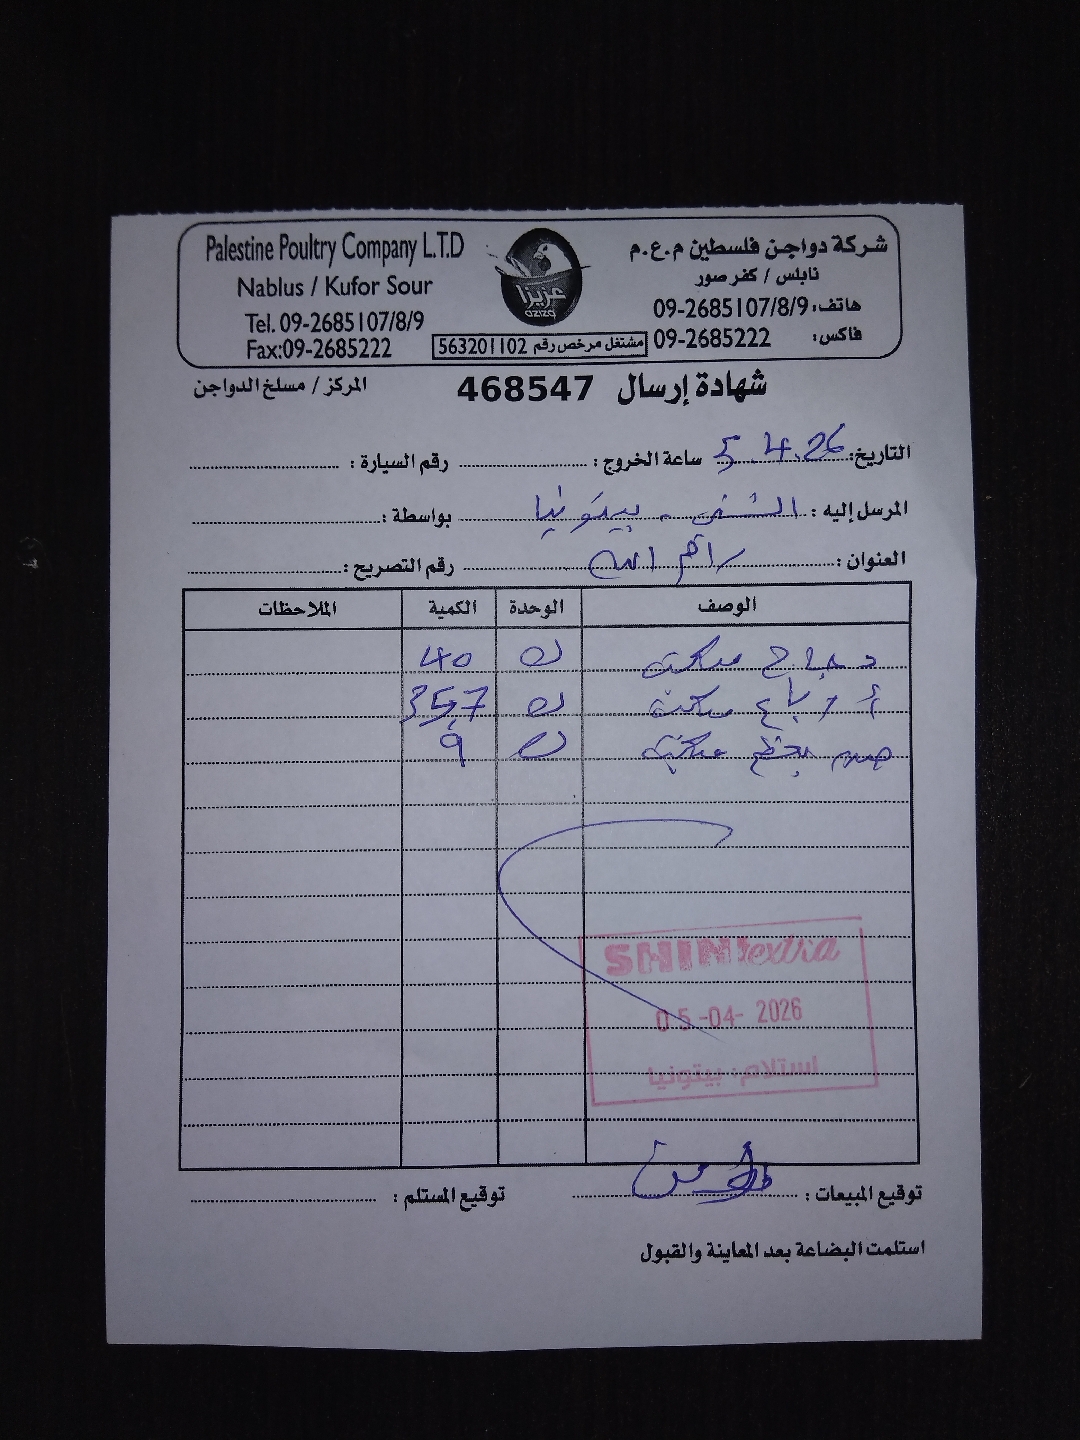 Palestine Poultry Company L.T.D
Nablus / Kufor Sour
Tel. 09-2685107/8/9
Fax:09-2685222
عزيزا
aziza
شركة دواجن فلسطين م.ع.م
نابلس / كفر صور
هاتف: 09-2685107/8/9
فاكس: 09-2685222
مشتغل مرخص رقم 563201102
شهادة إرسال 468547
المركز / مسلخ الدواجن
التاريخ: 5.4.26 ساعة الخروج: رقم السيارة:
المرسل إليه: الشني - بيتونيا بواسطة:
العنوان: رام الله رقم التصريح:
الوصف الوحدة الكمية الملاحظات
دجاج ك 40
أرباع ك 35,7
بعظم ك 9
SHINI extra
05-04-2026
استلام: بيتونيا
توقيع المبيعات: توقيع المستلم:
استلمت البضاعة بعد المعاينة والقبول